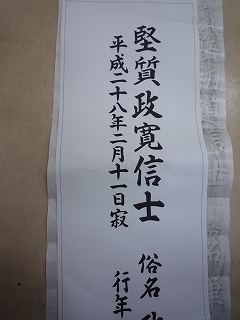 堅質政寛信士
平成二十八年二月十一日寂
俗名
行年